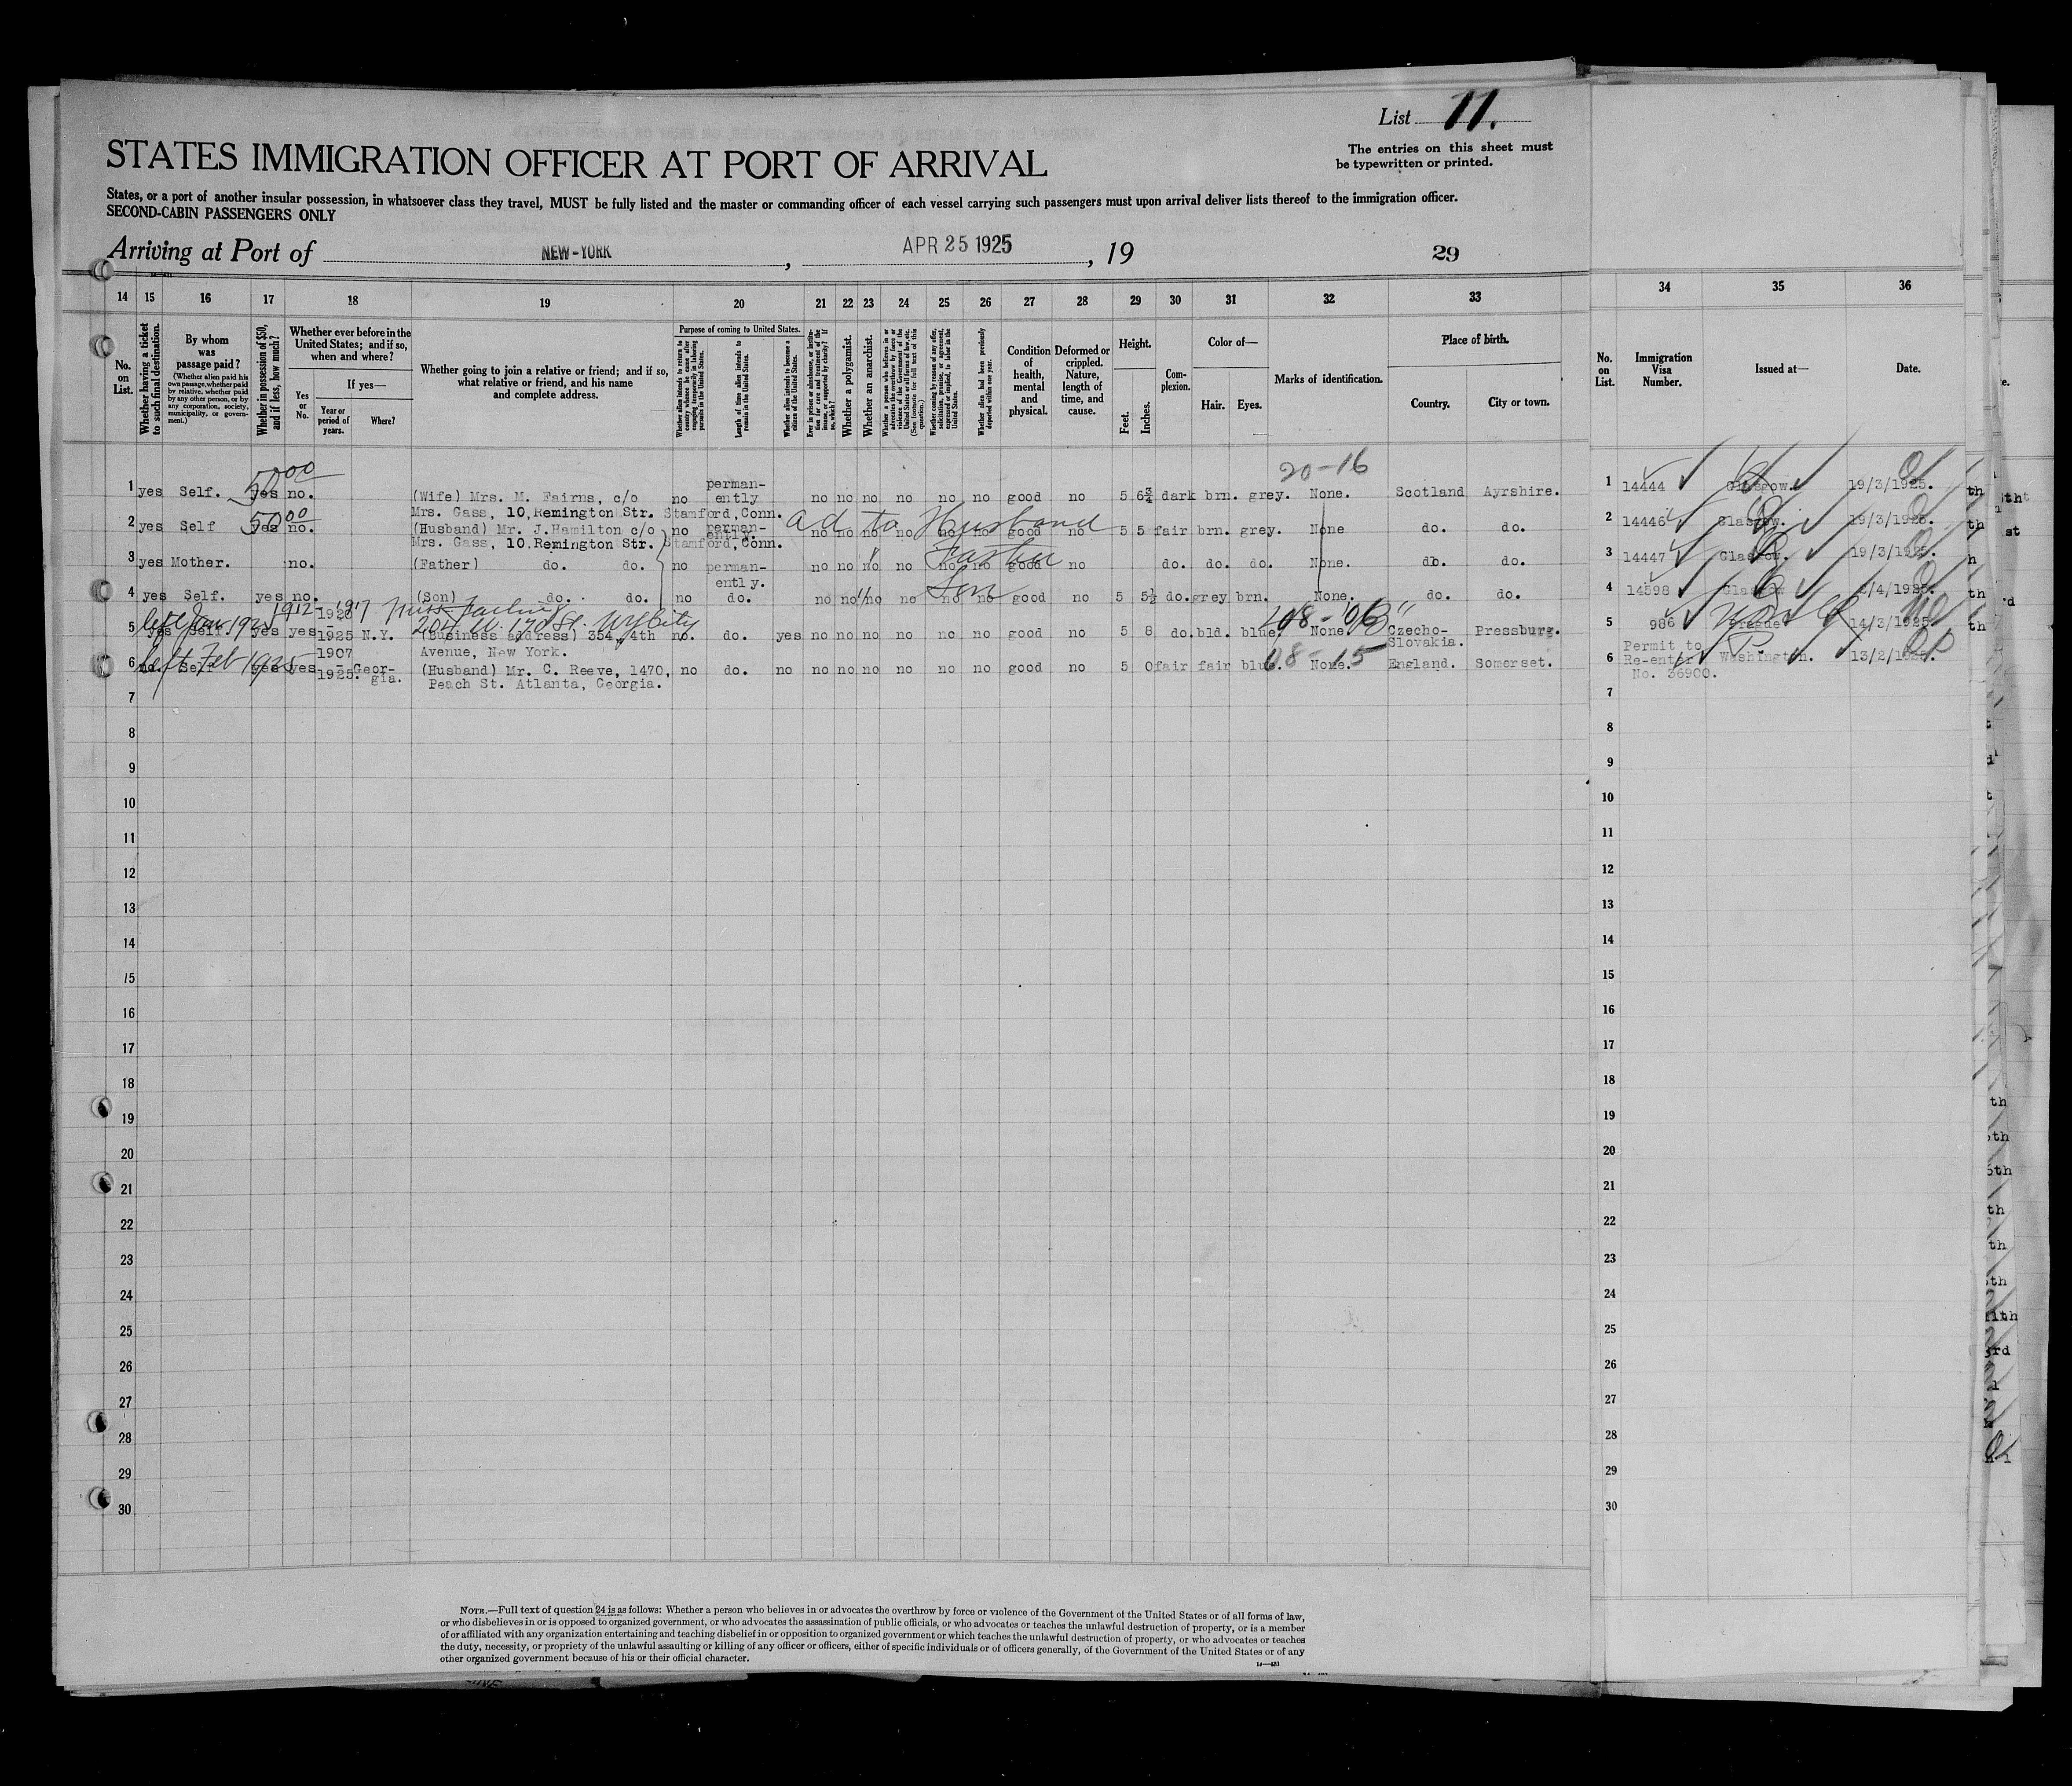 List 11.
The entries on this sheet must
be typewritten or printed.
STATES IMMIGRATION OFFICER AT PORT OF ARRIVAL
States, or a port of another insular possession, in whatsoever class they travel, MUST be fully listed and the master or commanding officer of each vessel carrying such passengers must upon arrival deliver lists thereof to the immigration officer.
SECOND-CABIN PASSENGERS ONLY
Arriving at Port of NEW-YORK, APR 25 1925, 19 29
14 15 16 17 18 19 20 21 22 23 24 25 26 27 28 29 30 31 32 33 34 35 36
No. on List.
Whether having a ticket to such final destination.
By whom was passage paid?
(Whether alien paid his own passage, whether paid by relative, whether paid by any other person, or by any corporation, society, municipality, or government.)
Whether in possession of $50, and if less, how much?
Whether ever before in the United States; and if so, when and where?
Yes or No.
If yes—
Year or period of years.
Where?
Whether going to join a relative or friend; and if so, what relative or friend, and his name and complete address.
Purpose of coming to United States.
Whether alien intends to return to country whence he came after engaging temporarily in laboring pursuits in the United States.
Length of time alien intends to remain in the United States.
Whether alien intends to become a citizen of the United States.
Ever in prison or almshouse, or institution for care and treatment of the insane, or supported by charity? If so, which?
Whether a polygamist.
Whether an anarchist.
Whether a person who believes in or advocates the overthrow by force or violence of the Government of the United States or all forms of law, etc. (See footnote for full text of this question.)
Whether coming by reason of any offer, solicitation, promise, or agreement, expressed or implied, to labor in the United States.
Whether alien had been previously deported within one year.
Condition of health, mental and physical.
Deformed or crippled. Nature, length of time, and cause.
Height.
Feet. Inches.
Complexion.
Color of—
Hair. Eyes.
Marks of identification.
Place of birth.
Country. City or town.
No. on List.
Immigration Visa Number.
Issued at—
Date.
50 00 20-16
1 yes Self. yes no. (Wife) Mrs. M. Fairns, c/o no perman-ently no no no no no no good no 5 6¾ dark brn. grey. None. Scotland Ayrshire. 1 14444 Glasgow. 19/3/1925.
Mrs. Gass, 10, Remington Str. Stamford, Conn.
50 00 ad to Husband
2 yes Self yes no. (Husband) Mr. J.Hamilton c/o no perman-ently. no no no no no no good no 5 5 fair brn. grey. None do. do. 2 14446 Glasgow. 19/3/1925.
Mrs. Gass, 10, Remington Str. Stamford, Conn.
3 yes Mother. no. (Father) do. do. no perman-ently. no no no no no no good no do. do. do. None. do. do. 3 14447 Glasgow. 19/3/1925.
Son
4 yes Self. yes no. (Son) do. do. no do. no no no no no no good no 5 5½ do. grey brn. None. do. do. 4 14598 Glasgow 2/4/1925.
left Jan 1925 1912-1917
204 W. 170 St. NY City 108-
5 yes Self. yes yes 1920 - 1925 N.Y. (Business address) 354, 4th no. do. yes no no no no no no good no 5 8 do. bld. blue. None. Czecho-Slovakia. Pressburg. 5 986 Prague 14/3/1925.
Avenue, New York.
left Feb 1925 08-15
6 no Self yes yes 1907 - 1925. Geor-gia. (Husband) Mr. C. Reeve, 1470, no do. no no no no no no no good no 5 0 fair fair blue. None. England. Somerset. 6 Permit to Re-enter No. 36900. Washington. 13/2/1925.
Peach St. Atlanta, Georgia.
7 7
8 8
9 9
10 10
11 11
12 12
13 13
14 14
15 15
16 16
17 17
18 18
19 19
20 20
21 21
22 22
23 23
24 24
25 25
26 26
27 27
28 28
29 29
30 30
NOTE.—Full text of question 24 is as follows: Whether a person who believes in or advocates the overthrow by force or violence of the Government of the United States or of all forms of law,
or who disbelieves in or is opposed to organized government, or who advocates the assassination of public officials, or who advocates or teaches the unlawful destruction of property, or is a member
of or affiliated with any organization entertaining and teaching disbelief in or opposition to organized government or which teaches the unlawful destruction of property, or who advocates or teaches
the duty, necessity, or propriety of the unlawful assaulting or killing of any officer or officers, either of specific individuals or of officers generally, of the Government of the United States or of any
other organized government because of his or their official character.